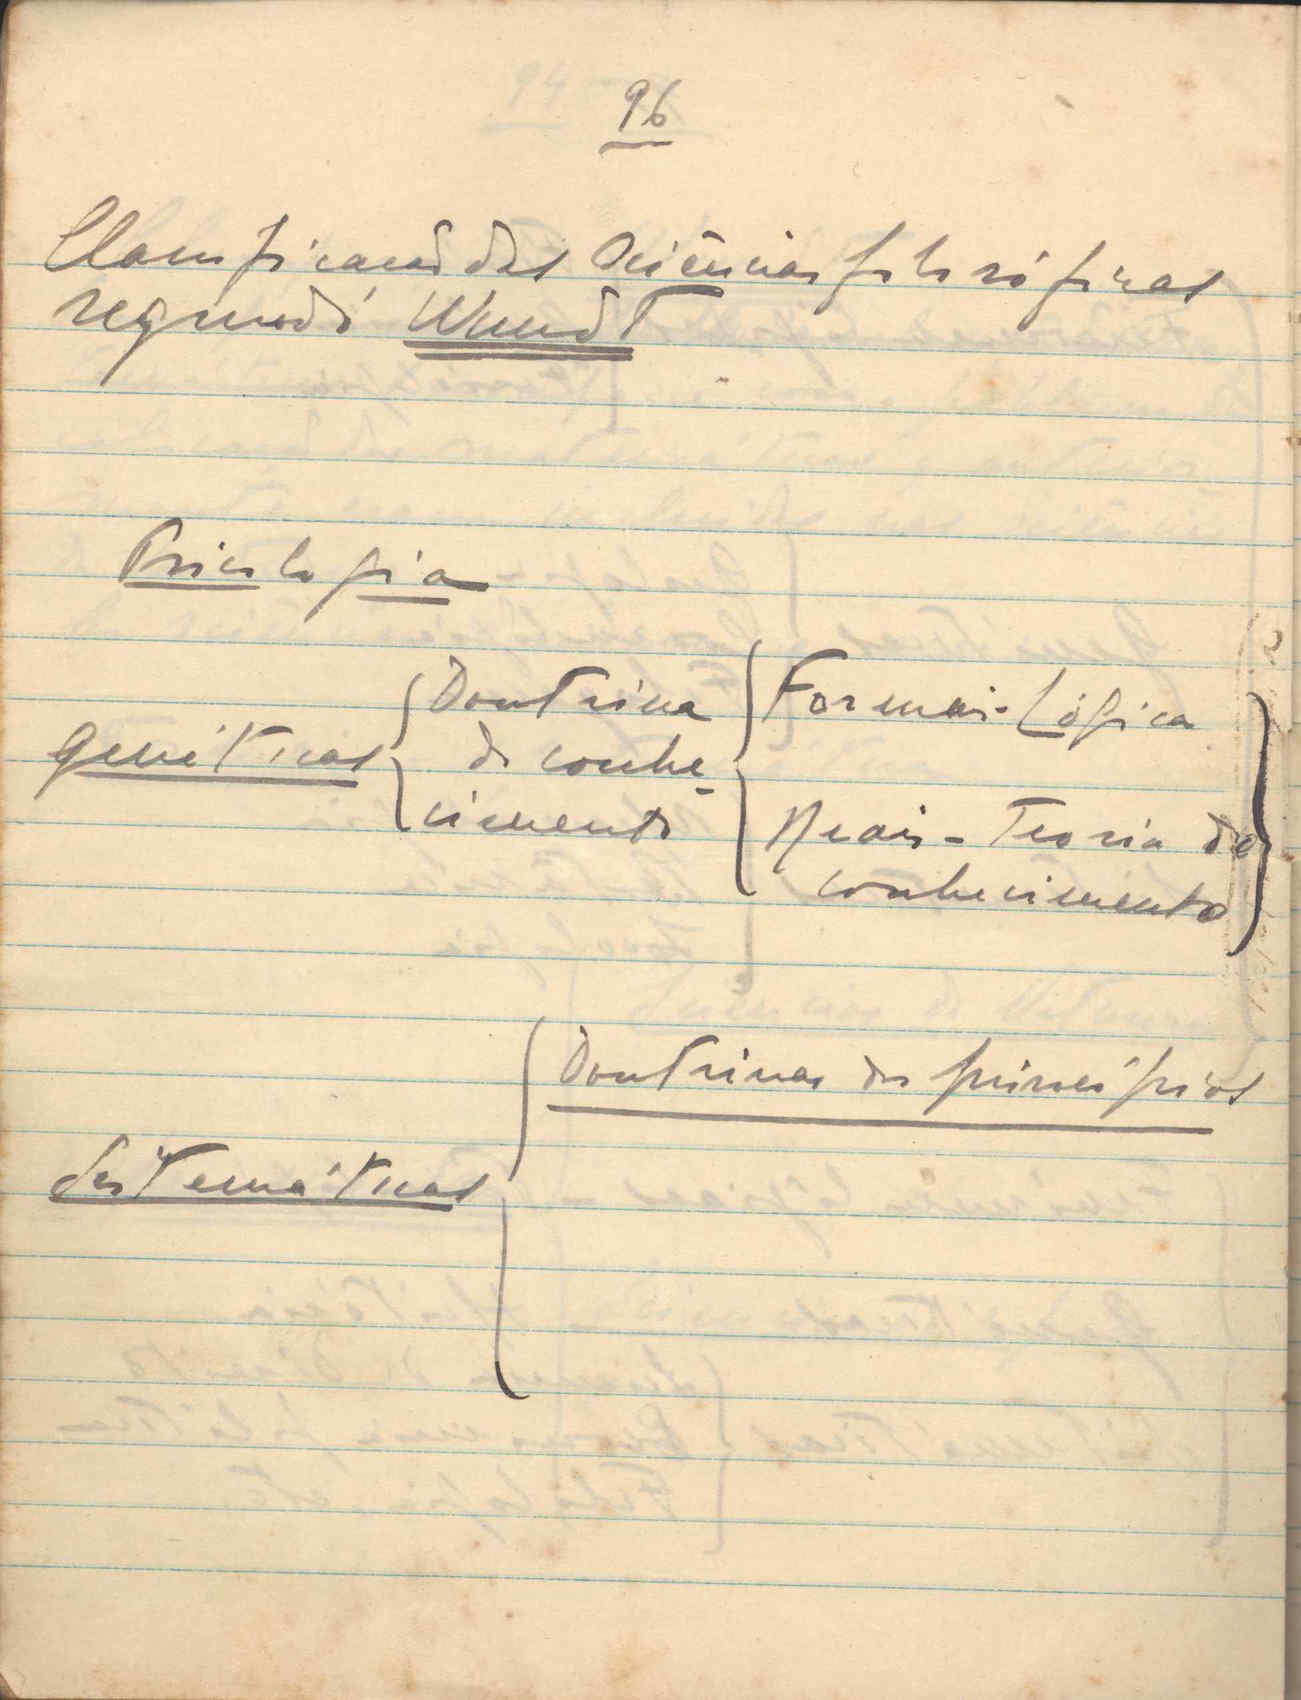 96
Classificação das Sciências filosóficas
segundo Wundt
Psicologia
Genéticas
Doutrina
do conhe-
cimento
Formais - Lógica
Reais - Teoria do
conhecimento
Sistemáticas
Doutrinas dos princípios